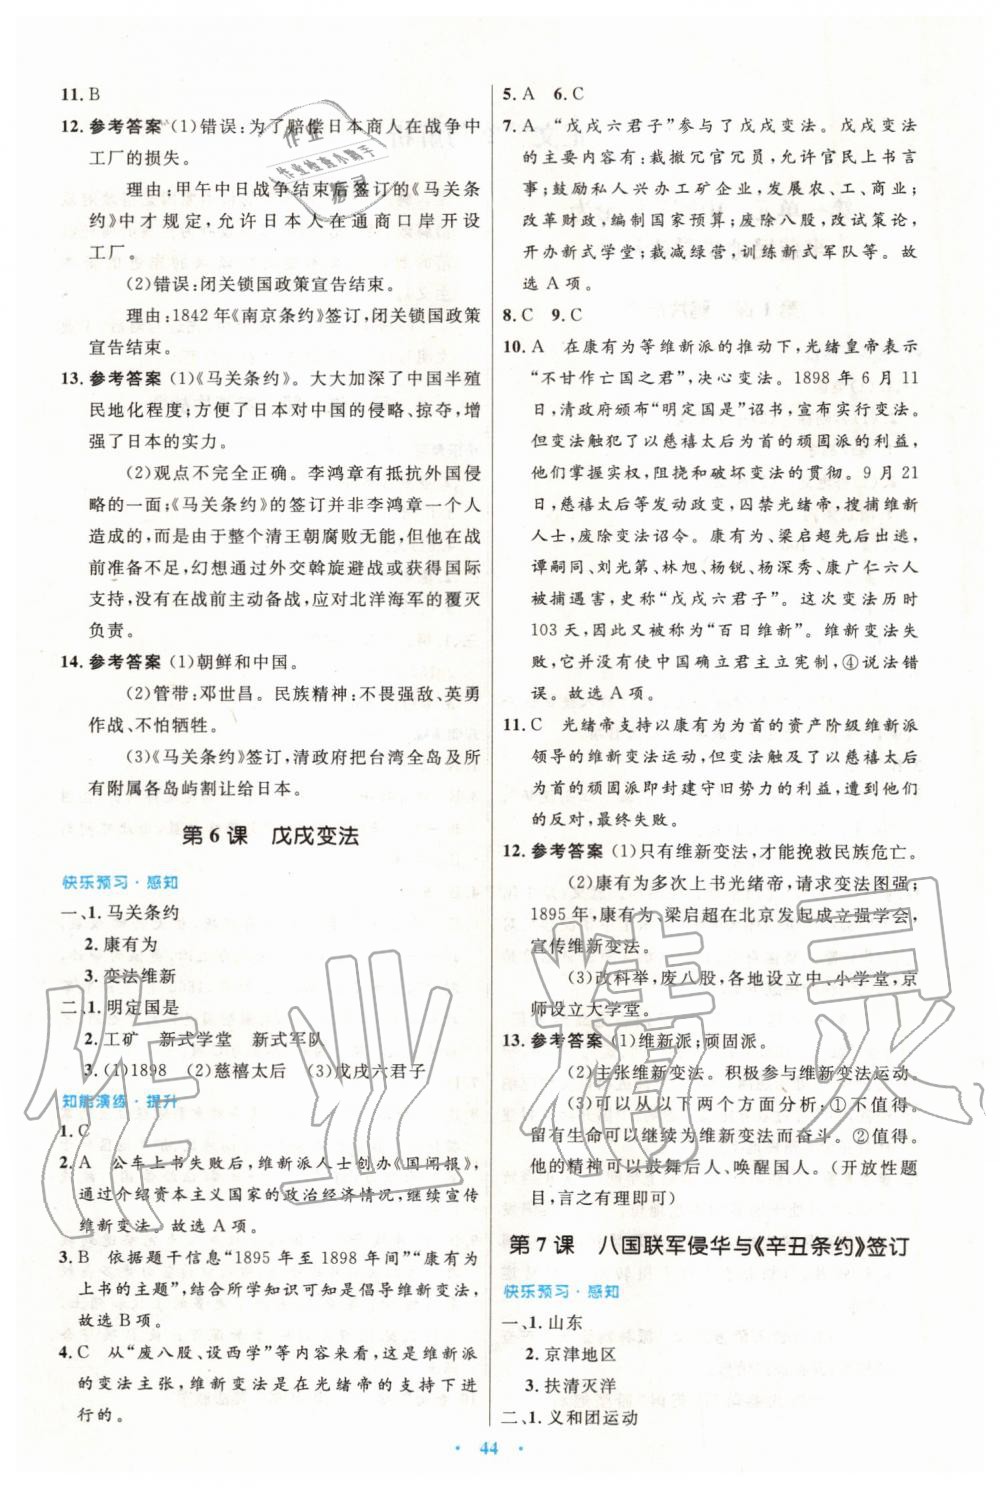 11. B
12. 参考答案 (1)错误:为了赔偿日本商人在战争中
工厂的损失。
理由:甲午中日战争结束后签订的《马关条
约》中才规定,允许日本人在通商口岸开设
工厂。
(2)错误:闭关锁国政策宣告结束。
理由:1842年《南京条约》签订,闭关锁国政策
宣告结束。
13. 参考答案 (1)《马关条约》。大大加深了中国半殖
民地化程度;方便了日本对中国的侵略、掠夺,增
强了日本的实力。
(2)观点不完全正确。李鸿章有抵抗外国侵
略的一面;《马关条约》的签订并非李鸿章一个人
造成的,而是由于整个清王朝腐败无能,但他在战
前准备不足,幻想通过外交斡旋避战或获得国际
支持,没有在战前主动备战,应对北洋海军的覆灭
负责。
14. 参考答案 (1)朝鲜和中国。
(2)管带:邓世昌。民族精神:不畏强敌、英勇
作战、不怕牺牲。
(3)《马关条约》签订,清政府把台湾全岛及所
有附属各岛屿割让给日本。
第6课 戊戌变法
快乐预习·感知
一、1. 马关条约
2. 康有为
3. 变法维新
二、1. 明定国是
2. 工矿 新式学堂 新式军队
3. (1)1898 (2)慈禧太后 (3)戊戌六君子
知能演练·提升
1. C
2. A 公车上书失败后,维新派人士创办《国闻报》,
通过介绍资本主义国家的政治经济情况,继续宣传
维新变法。故选A项。
3. B 依据题干信息“1895年至1898年间”“康有为
上书的主题”,结合所学知识可知是倡导维新变法,
故选B项。
4. C 从“废八股、设西学”等内容来看,这是维新派的
变法主张,维新变法是在光绪帝的支持下进
行的。
5. A 6. C
7. A “戊戌六君子”参与了戊戌变法。戊戌变法的
内容有:裁撤冗官冗员,允许官民上书言事;
鼓励私人兴办工矿企业,发展农、工、商业;
改革财政,编制国家预算;废除八股,改试策论,
开办新式学堂;裁减绿营,训练新式军队等。故
选A项。
8. C 9. C
10. A 在康有为等维新派的推动下,光绪皇帝表示
“不甘作亡国之君”,决心变法。1898年6月11
日,清政府颁布“明定国是”诏书,宣布实行变法。
但变法触犯了以慈禧太后为首的顽固派的利益,
他们掌握实权,阻挠和破坏变法的贯彻。9月21
日,慈禧太后等发动政变,囚禁光绪帝,搜捕维新
人士,废除变法诏令。康有为、梁启超先后出逃,
谭嗣同、刘光第、林旭、杨锐、杨深秀、康广仁六人
被捕遇害,史称“戊戌六君子”。这次变法历时
103天,因此又被称为“百日维新”。维新变法失
败,它没有使中国确立君主立宪制,④说法错
误。故选A项。
11. C 光绪帝支持以康有为为首的资产阶级维新派
领导的维新变法运动,但变法触及了以慈禧太后
为首的顽固派即封建守旧势力的利益,遭到他们
的反对,最终失败。
12. 参考答案 (1)只有维新变法,才能挽救民族危亡。
(2)康有为多次上书光绪帝,请求变法图强;
1895年,康有为、梁启超在北京发起成立强学会,
宣传维新变法。
(3)改科举,废八股,各地设立中、小学堂,京
师设立大学堂。
13. 参考答案 (1)维新派;顽固派。
(2)主张维新变法。积极参与维新变法运动。
(3)可以从以下两个方面分析:①不值得。
留有生命可以继续为维新变法而奋斗。②值得。
他的精神可以鼓舞后人、唤醒国人。(开放性题
目,言之有理即可)
第7课 八国联军侵华与《辛丑条约》签订
快乐预习·感知
一、1. 山东
2. 京津地区
3. 扶清灭洋
二、1. 义和团运动
44
作业精灵